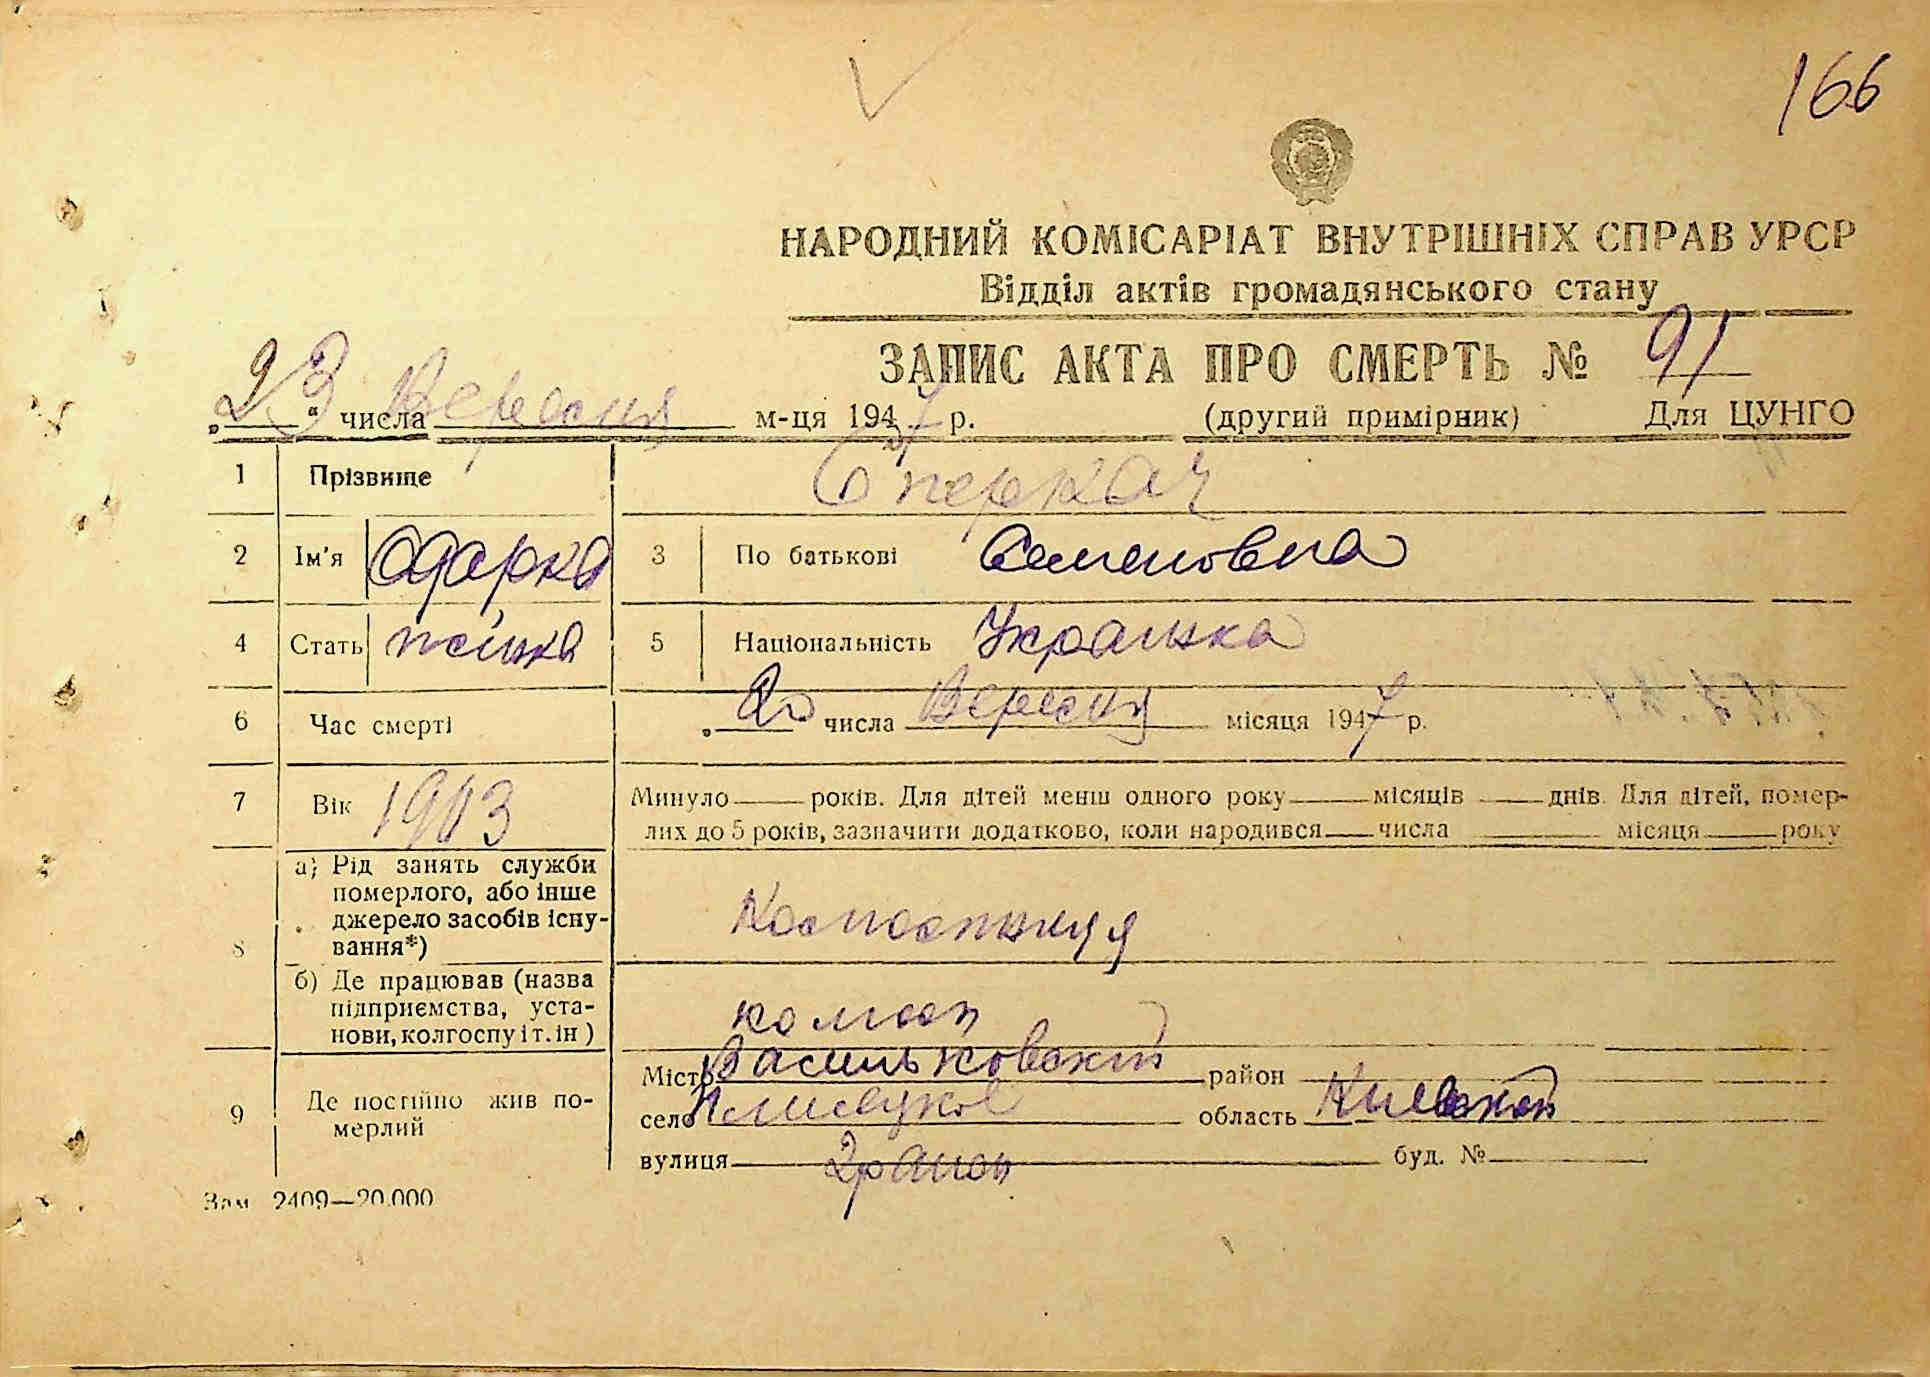 166
НАРОДНИЙ КОМІСАРІАТ ВНУТРІШНІХ СПРАВ УРСР
Відділ актів громадянського стану
ЗАПИС АКТА ПРО СМЕРТЬ № 91
„23“ числа Вересня м-ця 1947 р. (другий примірник) Для ЦУНГО
1 Прізвище Сперкач
2 Ім'я Одарка 3 По батькові Семеновна
4 Стать жінка 5 Національність Українка
6 Час смерті „20 числа Вересня місяця 1947 р.
7 Вік 1903 Минуло років. Для дітей менш одного року місяців днів. Для дітей, помер-
лих до 5 років, зазначити додатково, коли народився числа місяця року
8 а) Рід занять служби
померлого, або інше
джерело засобів існу-
вання*)
б) Де працював (назва
підприємства, уста-
нови, колгоспу і т. ін)
9 Де постійно жив по-
мерлий
Місто Васильковский район
село область Киевской
вулиця буд. №
Зам 2409—20.000